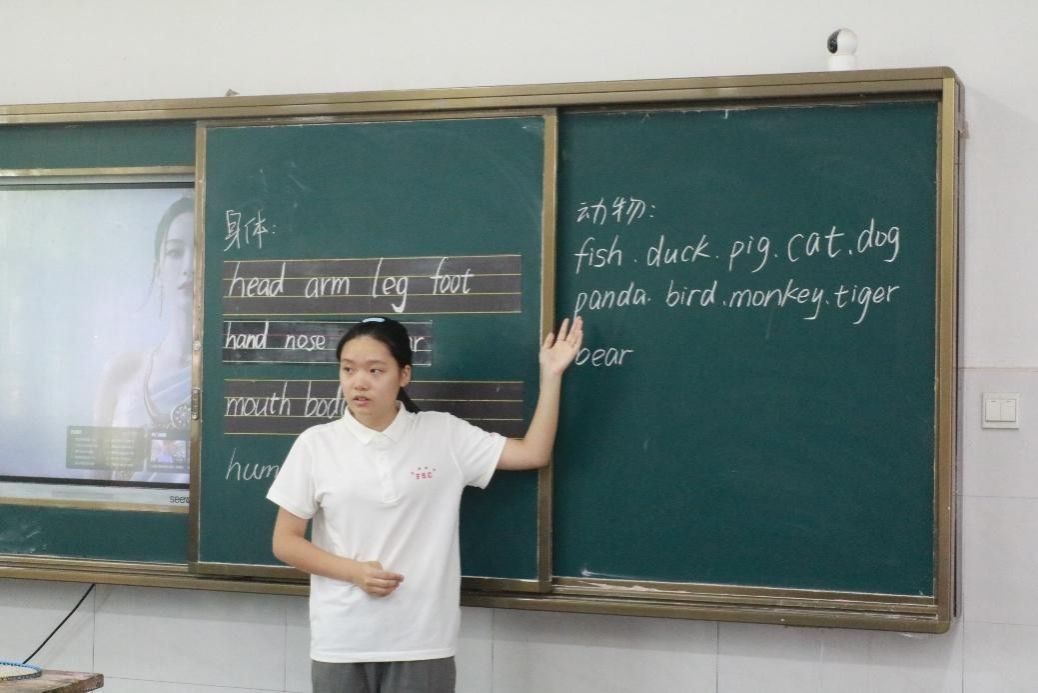 身体:
head arm leg foot
hand nose
mouth
动物:
fish . duck. pig. cat. dog
panda. bird. monkey. tiger
bear